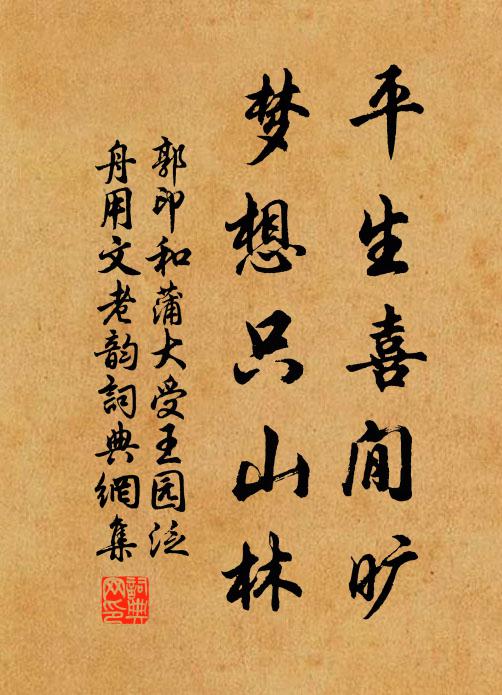 平生喜閒旷
梦想只山林
郭印和蒲大受王园泛
舟用文老韵詞典網集
詞典网印